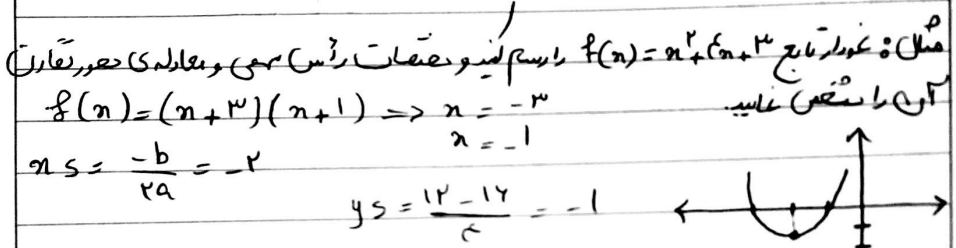 مثال: نمودار تابع f(x) = x² + ۴x + ۳ را رسم کنید و مختصات رأس سهمی و معادله‌ی محور تقارن
آن را مشخص نمایید.
f(x) = (x + ۳)(x + 1) => x = -۳
x = -1
xs = -b/۲a = -۲
ys = (1۲ - 1۶)/۴ = -1